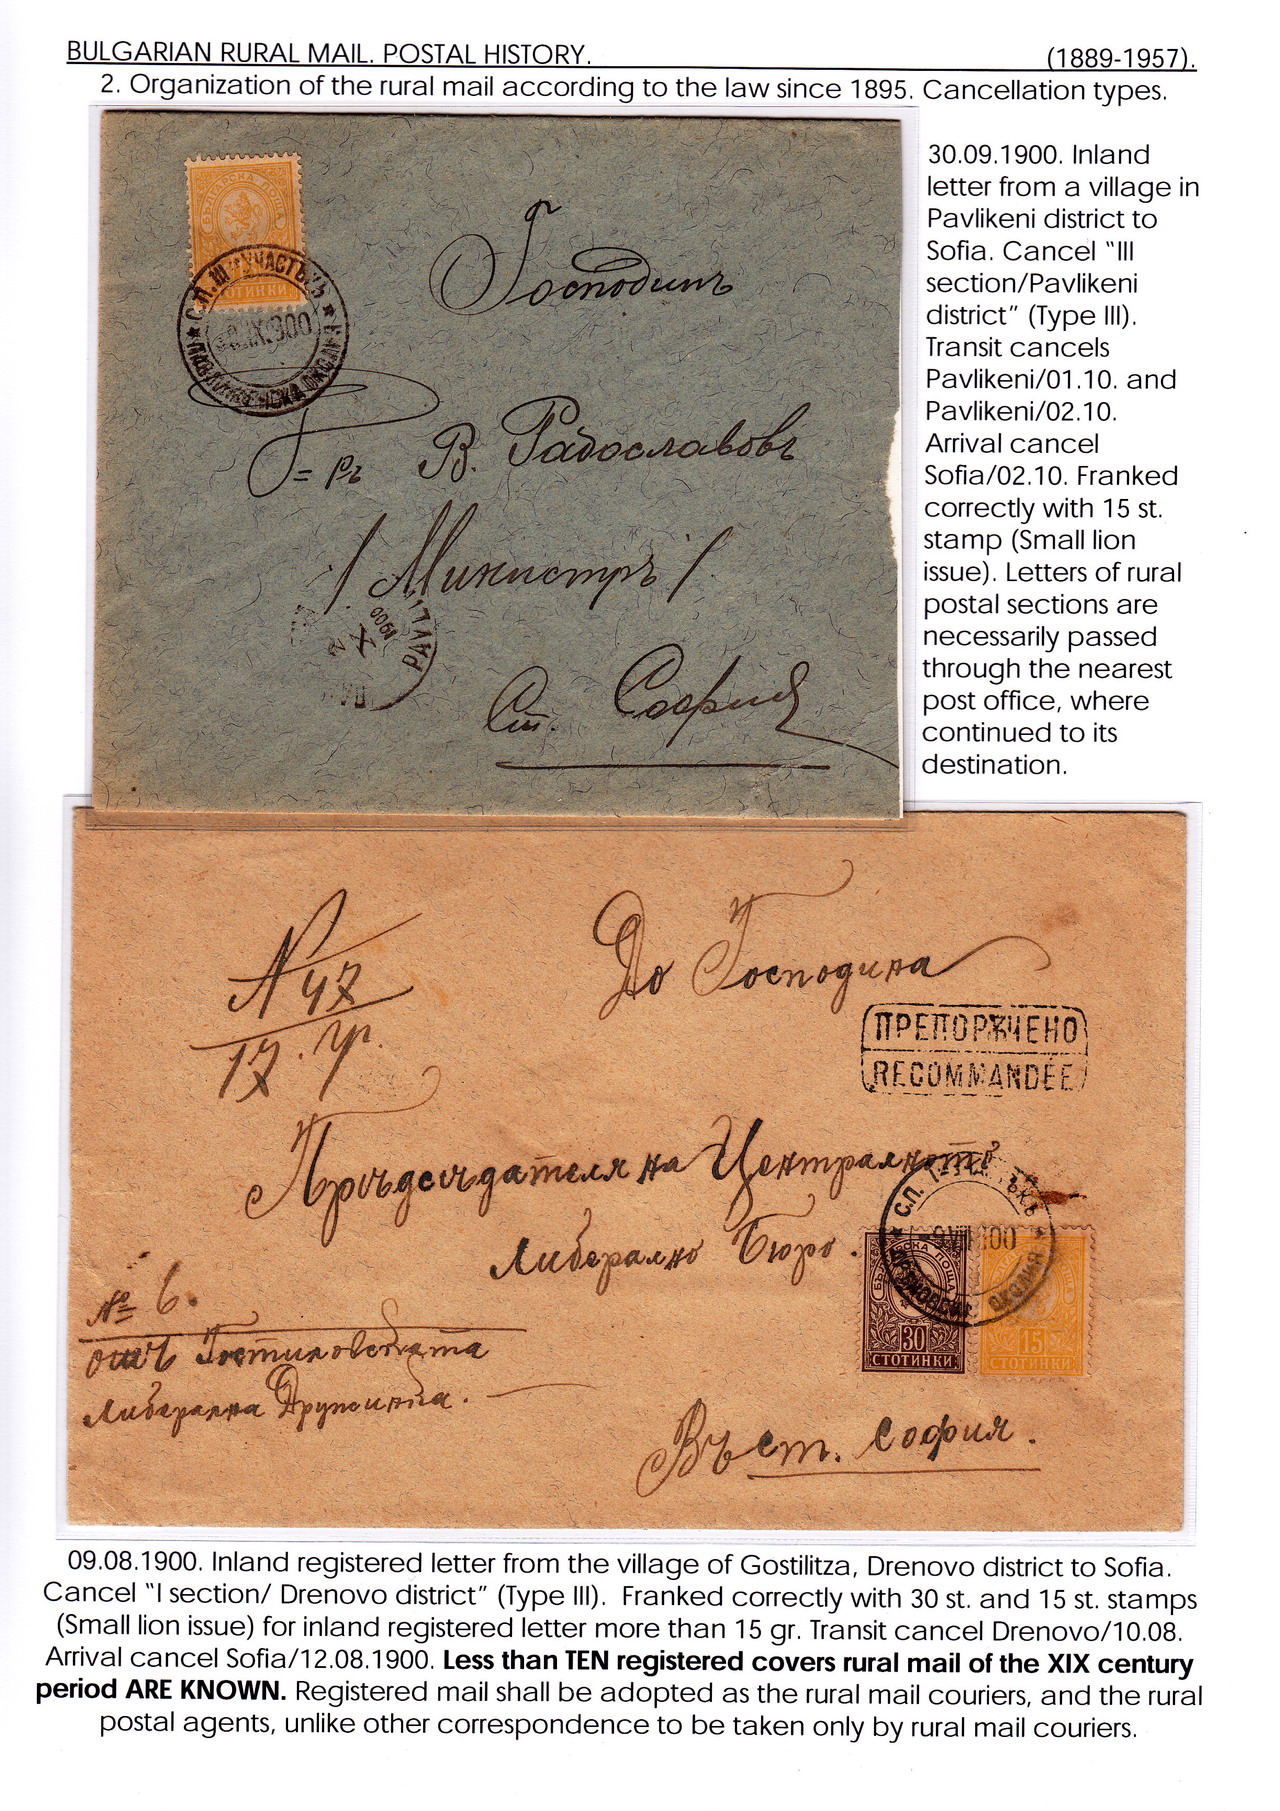 BULGARIAN RURAL MAIL. POSTAL HISTORY. (1889-1957).
2. Organization of the rural mail according to the law since 1895. Cancellation types.
30.09.1900. Inland
letter from a village in
Pavlikeni district to
Sofia. Cancel “III
section/Pavlikeni
district” (Type III).
Transit cancels
Pavlikeni/01.10. and
Pavlikeni/02.10.
Arrival cancel
Sofia/02.10. Franked
correctly with 15 st.
stamp (Small lion
issue). Letters of rural
postal sections are
necessarily passed
through the nearest
post office, where
continued to its
destination.
БЪЛГАРСКА ПОЩА
СТОТИНКИ
С.П. III УЧАСТЪКЪ
IX.900
Господинъ
В. Радославовъ
/Министръ/
X
1900
Ст. София
N 47
17. гр.
До Господина
ПРЕПОРѪЧЕНО
RECOMMANDÉE
Прѣдсѣдателя на Централното
Либерално Бюро.
С.П.
ОКОЛИЯ
ПОЩА
30
СТОТИНКИ
15
СТОТИНКИ
№ 6.
отъ Гостиловската
Либерална Дружина.
Въ ст. София.
09.08.1900. Inland registered letter from the village of Gostilitza, Drenovo district to Sofia.
Cancel “I section/ Drenovo district” (Type III). Franked correctly with 30 st. and 15 st. stamps
(Small lion issue) for inland registered letter more than 15 gr. Transit cancel Drenovo/10.08.
Arrival cancel Sofia/12.08.1900. Less than TEN registered covers rural mail of the XIX century
period ARE KNOWN. Registered mail shall be adopted as the rural mail couriers, and the rural
postal agents, unlike other correspondence to be taken only by rural mail couriers.